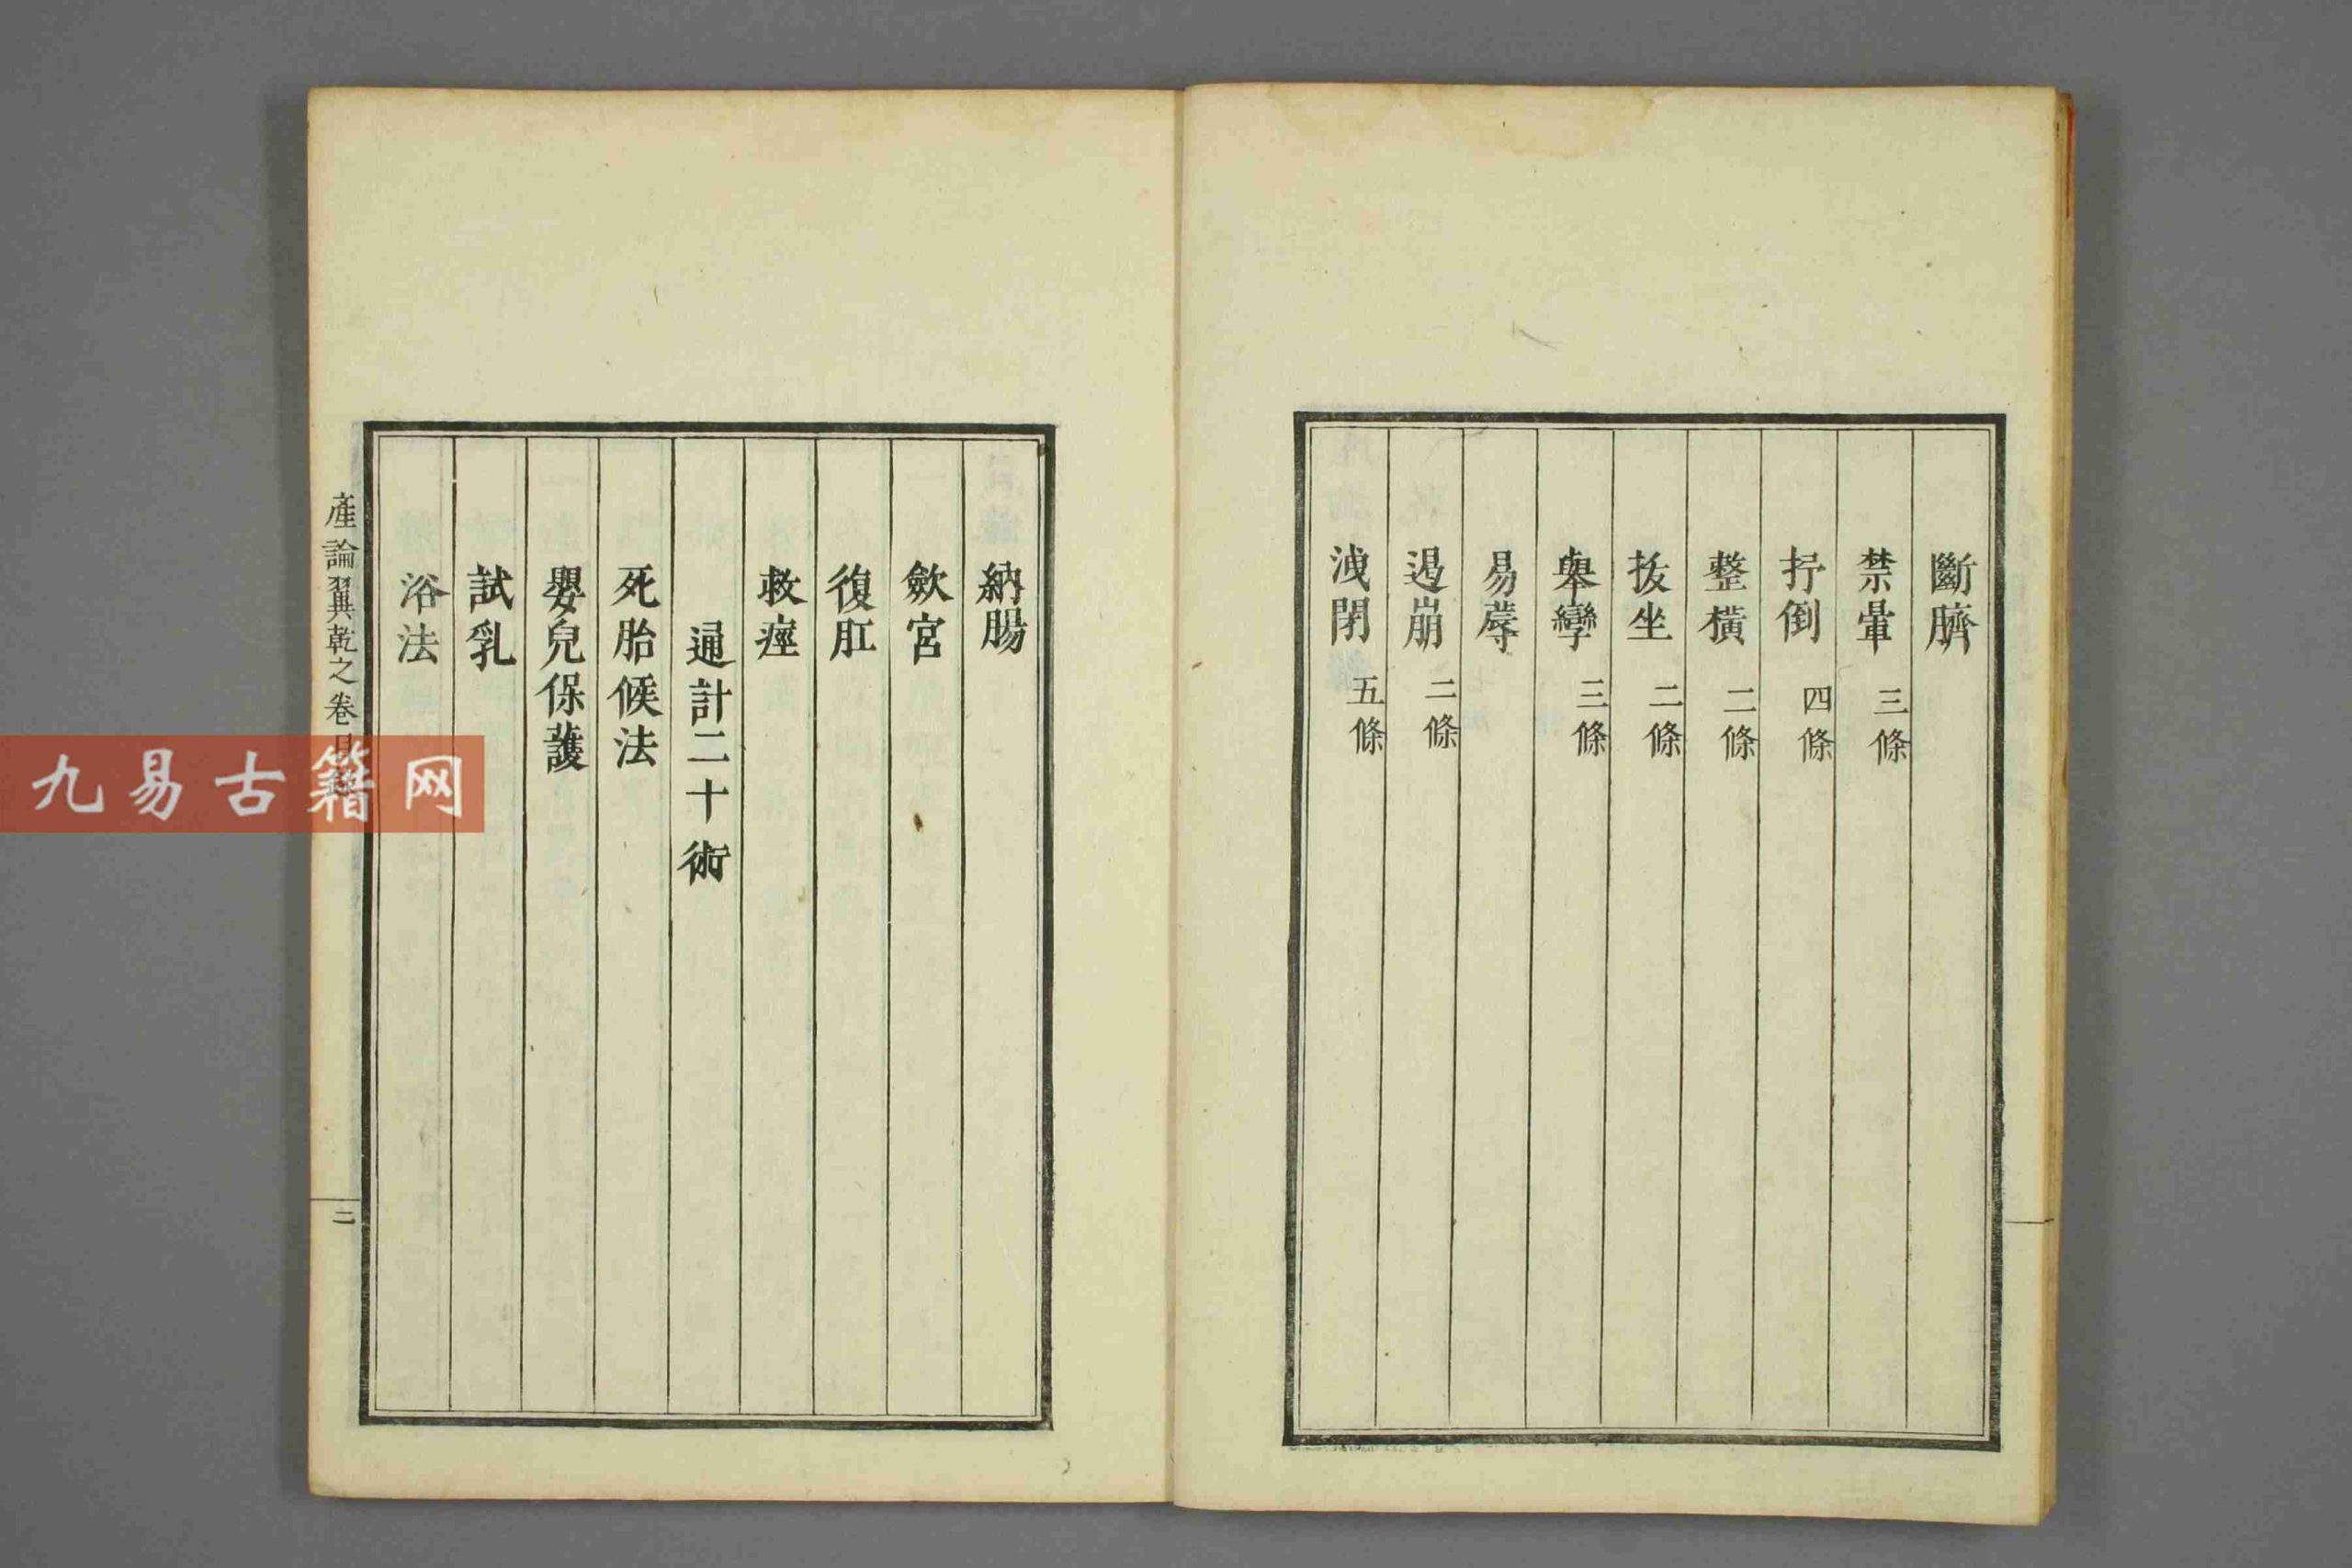 斷臍
禁暈 三條
拧倒 四條
整橫 二條
拔坐 二條
舉攣 三條
易蓐
遏崩 二條
洩閉 五條
納腸
斂宮
復肛
救痙
通計二十術
死胎候法
嬰兒保護
試乳
浴法
產論翼乾之卷目錄
二
九易古籍网